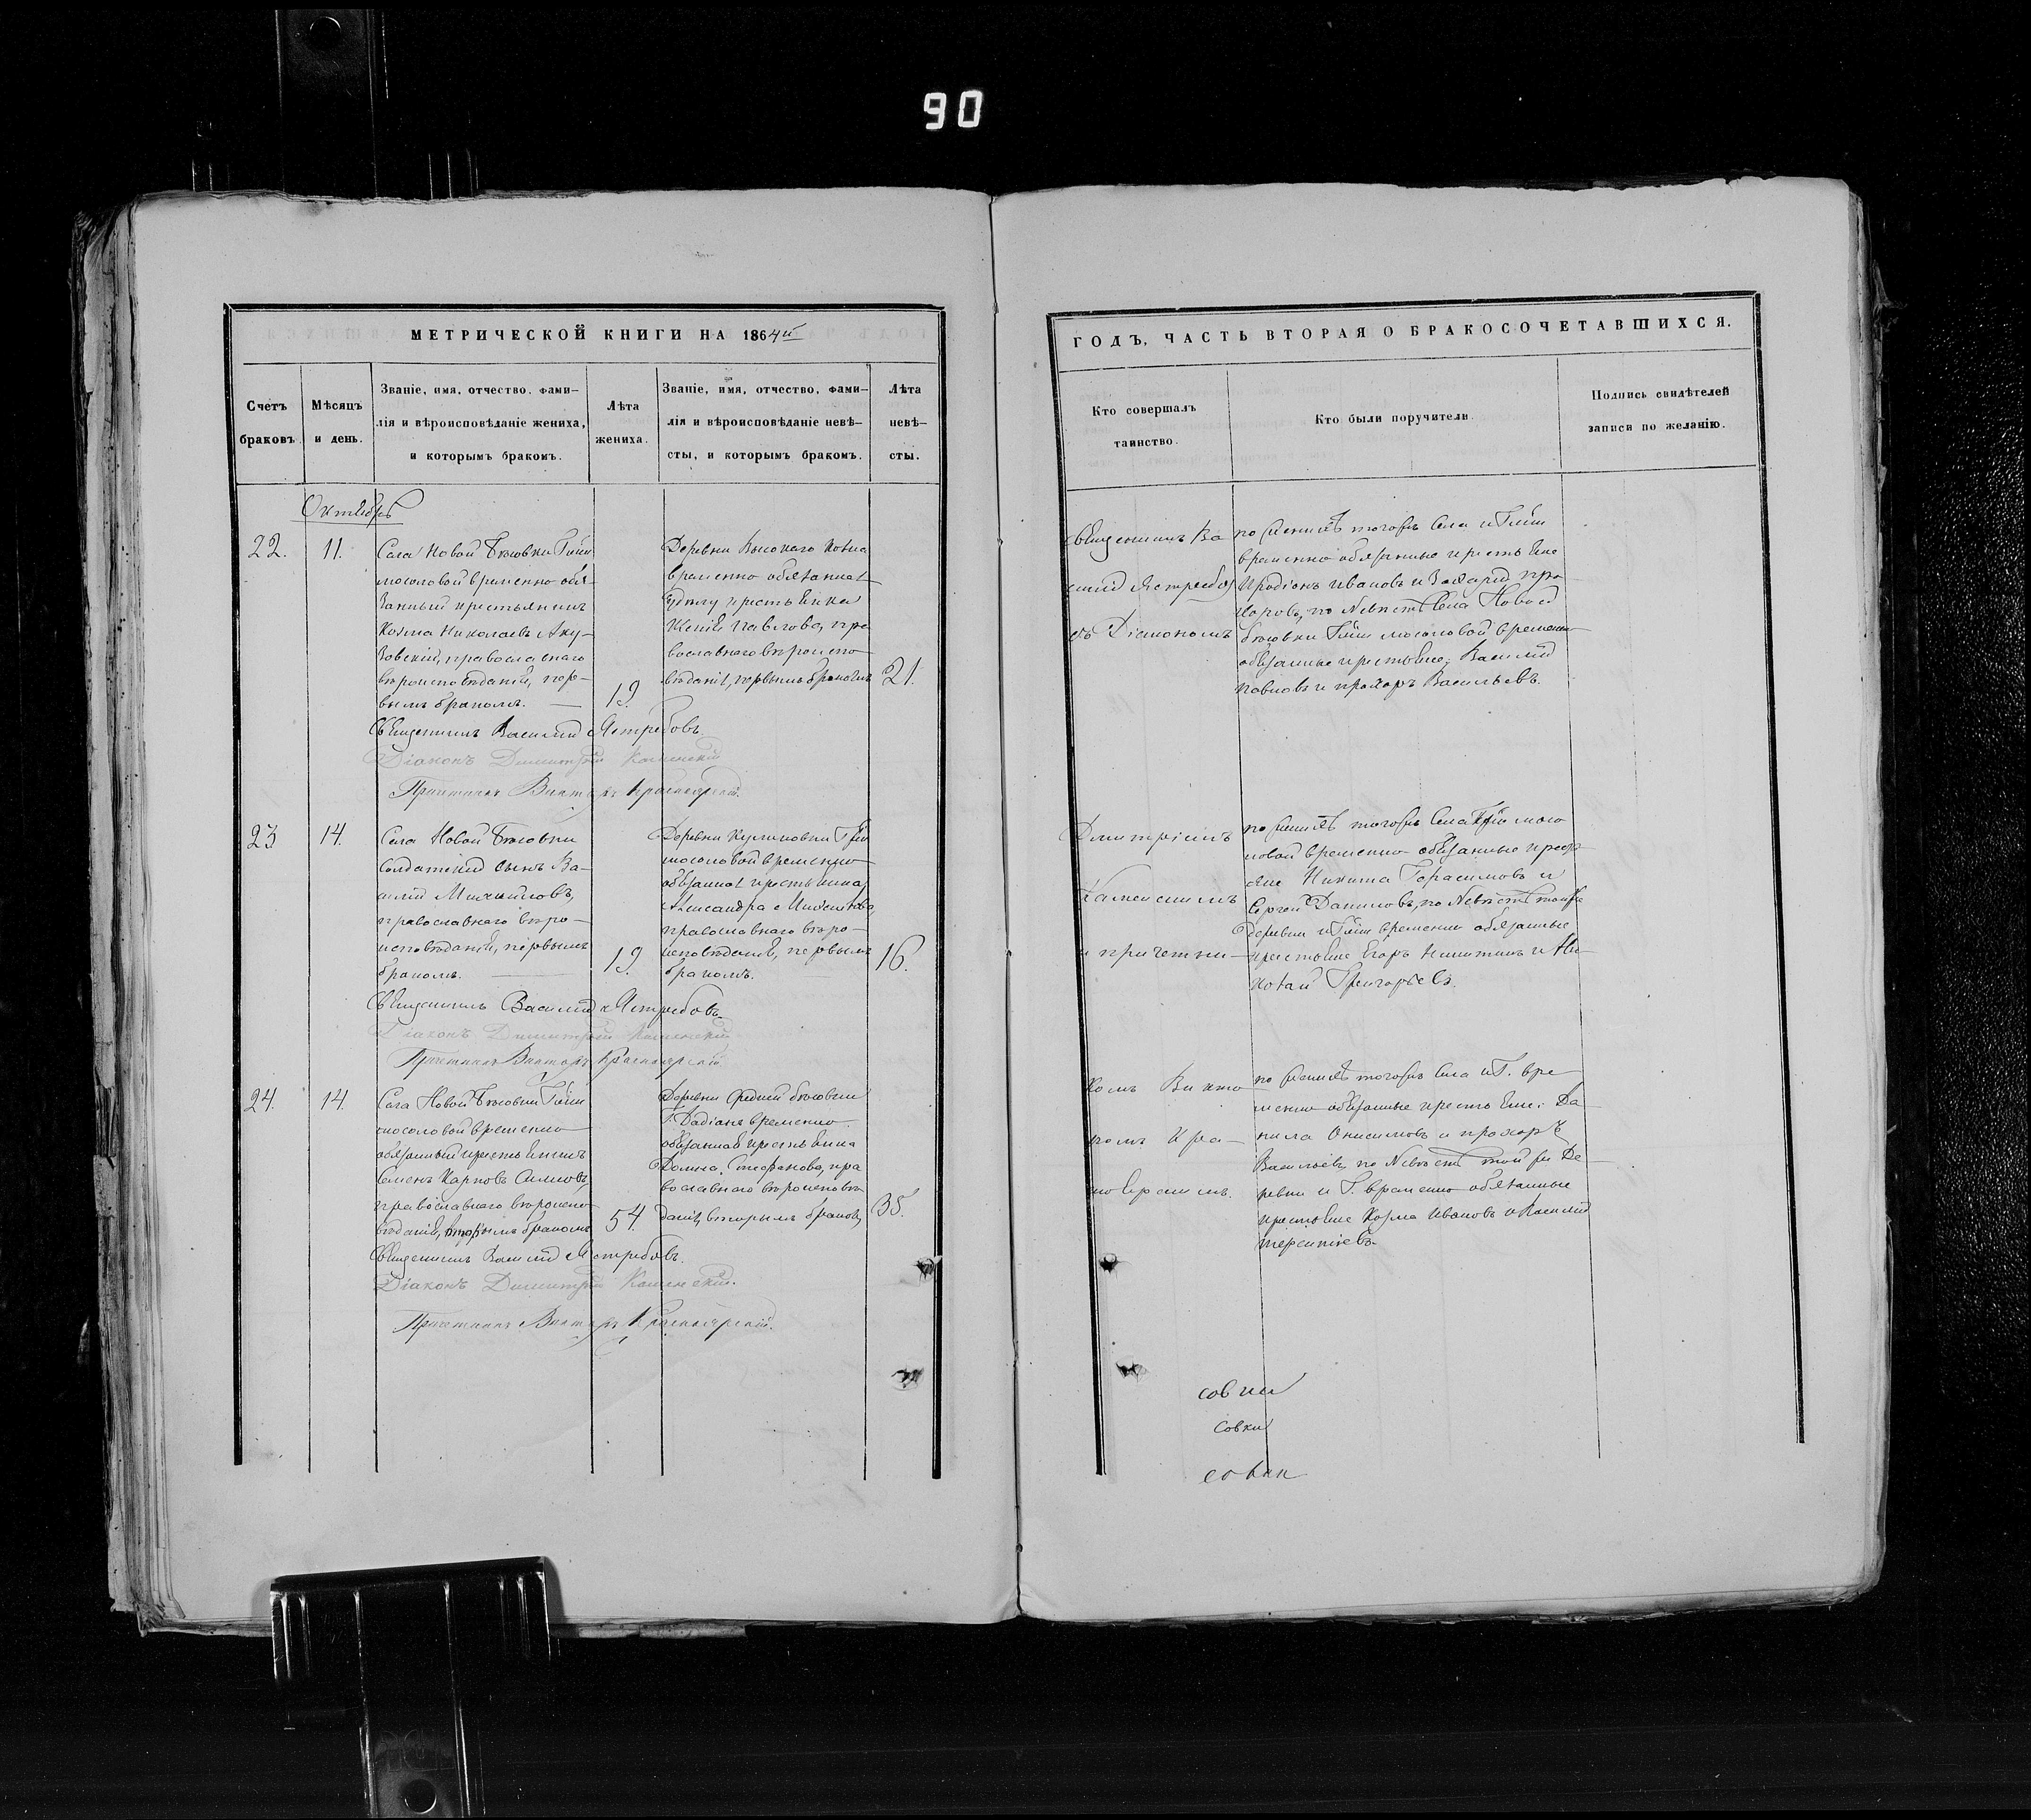 90
МЕТРИЧЕСКОЙ КНИГИ НА 1864й
Счетъ
браковъ.
Мѣсяцъ
и день.
Званіе, имя, отчество, фами-
лія и вѣроисповѣданіе жениха,
и которымъ бракомъ.
Лѣта
жениха.
Званіе, имя, отчество, фами-
лія и вѣроисповѣданіе невѣ-
сты, и которымъ бракомъ.
Лѣта
невѣ-
сты.
Октябрь
22.
11.
Села Новой
временно обя-
занный крестьянинъ
Козма Николаевъ
православнаго
вѣроисповѣданія, пер-
вымъ бракомъ.
19.
Деревни Высокаго
временно обязанная
Павлова, пра
вославнаго вѣроиспо
вѣданія, первымъ бракомъ
21.
Священникъ Василій Ястребовъ.
Діаконъ Димитрій Каменскій
Причетникъ Викторъ Красноярскій.
23
14.
Села Новой
солдатскій сынъ Ва-
силій Михайловъ,
православнаго вѣро-
исповѣданія, первымъ
бракомъ.
19.
Деревни
временно
обязанная
Александра
православнаго вѣро-
исповѣданія, первымъ
бракомъ.
16.
Священникъ Василій Ястребовъ.
Діаконъ Димитрій Каменскій
Причетникъ Викторъ Красноярскій
24.
14.
Села Новой
временно
обязанный крестьянинъ
Семенъ Карповъ
православнаго вѣроиспо
вѣданія, вторымъ бракомъ
54.
Деревни Средней
Г. Дадіанъ временно
обязанная
Домна Стефанова, пра
вославнаго вѣроисповѣ
данія, вторымъ бракомъ
35.
Священникъ Василій Ястребовъ.
Діаконъ Димитрій Каменскій.
Причетникъ Викторъ Красноярскій.
ГОДЪ, ЧАСТЬ ВТОРАЯ О БРАКОСОЧЕТАВШИХСЯ.
Кто совершалъ
таинство.
Кто были поручители.
Подпись свидѣтелей
записи по желанію.
Священникъ Ва
силій Ястребовъ
съ Діакономъ
Димитріемъ
Каменскимъ
и причетни-
комъ Викто
ромъ Кра-
сноярскимъ.
по женихѣ тогожъ села
временно обязанные
Иродіонъ Ивановъ и Захарій Про-
хоровъ, по Невѣстѣ села Новой
временно
обязанные крестьяне: Василій
Павловъ и Прохоръ Васильевъ.
по женихѣ тогожъ села
временно обязанные
Никита Герасимовъ и
Сергей Даниловъ, по Невѣстѣ тойже
деревни временно обязанные
крестьяне Егоръ Никитинъ и Ни-
колай Григорьевъ.
по женихѣ тогожъ села и Г. вре
менно обязанные крестьяне: Да
нила Онисимовъ и Прохоръ
Васильевъ, по Невѣстѣ той же де-
ревни и Г. временно обязанные
крестьяне Козма Ивановъ и Василій
Терентіевъ.
совки
совки
совки